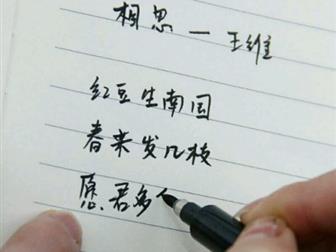 相思 — 王维
红豆生南国
春来发几枝
愿君多